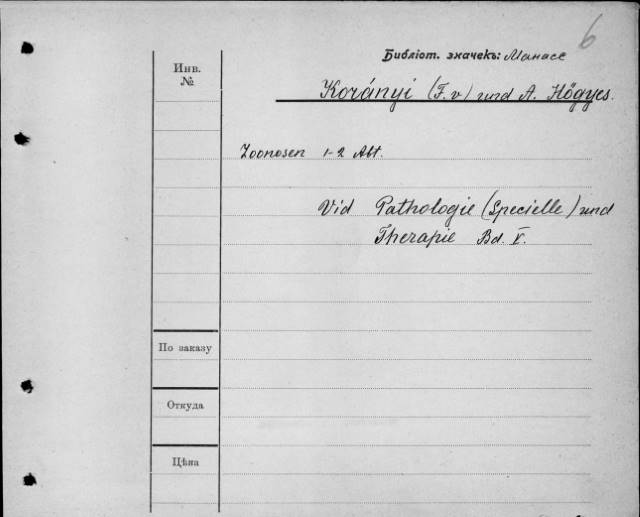 6
Библіот. значекъ: Манасе
Инв.
№
Korányi (F. v) und A. Högyes.
Zoonosen 1-2 Abt.
Vid Pathologie (Specielle) und
Therapie Bd. V.
По заказу
Откуда
Цѣна